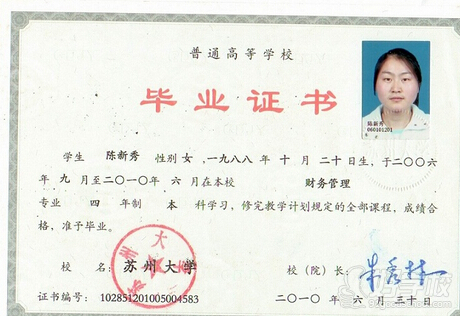 普通高等学校
毕业证书
陈新秀
060101201
学生 陈新秀 性别 女 ,一九八八年 十 月 二十日生,于二〇〇六
年 九 月至二〇一〇年 六 月在本校 财务管理
专业 四 年制 本 科学习,修完教学计划规定的全部课程,成绩合
格,准予毕业。
校 名: 苏州大学 校(院)长:
证书编号: 102851201005004583 二〇一〇 年 六 月 三十日